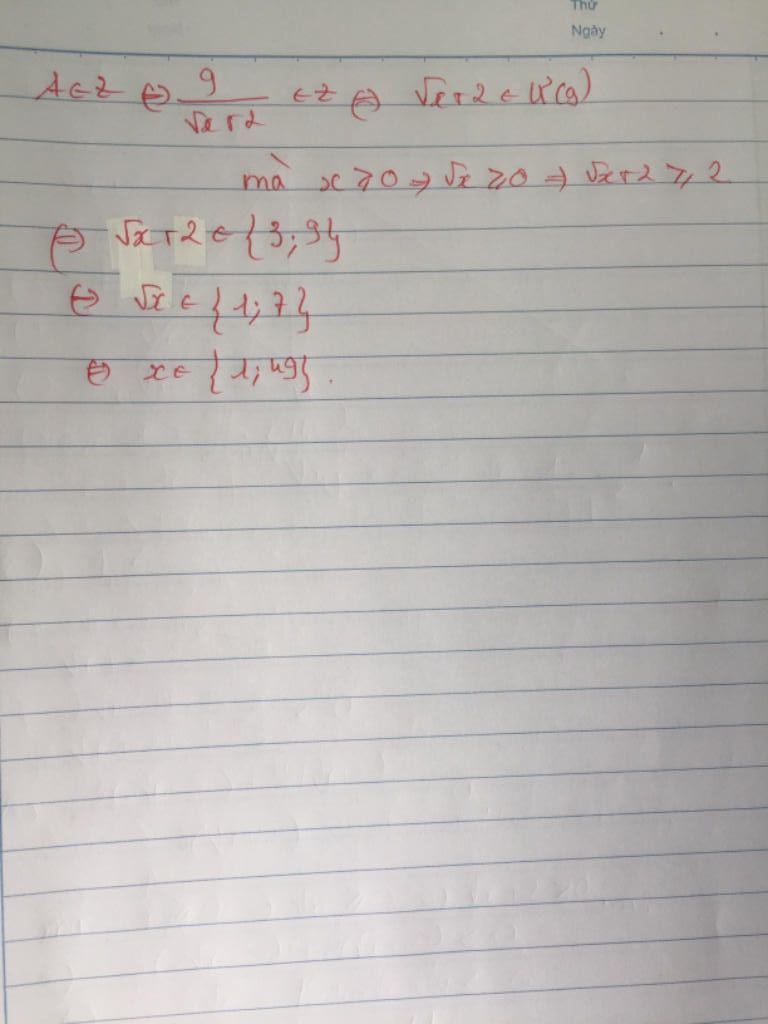 Thứ
Ngày
A ∈ Z ⇔ 9/(√x + 2) ∈ Z ⇔ √x + 2 ∈ Ư(9)
mà x ⩾ 0 ⇒ √x ⩾ 0 ⇒ √x + 2 ⩾ 2
⇔ √x + 2 ∈ {3; 9}
⇔ √x ∈ {1; 7}
⇔ x ∈ {1; 49}.